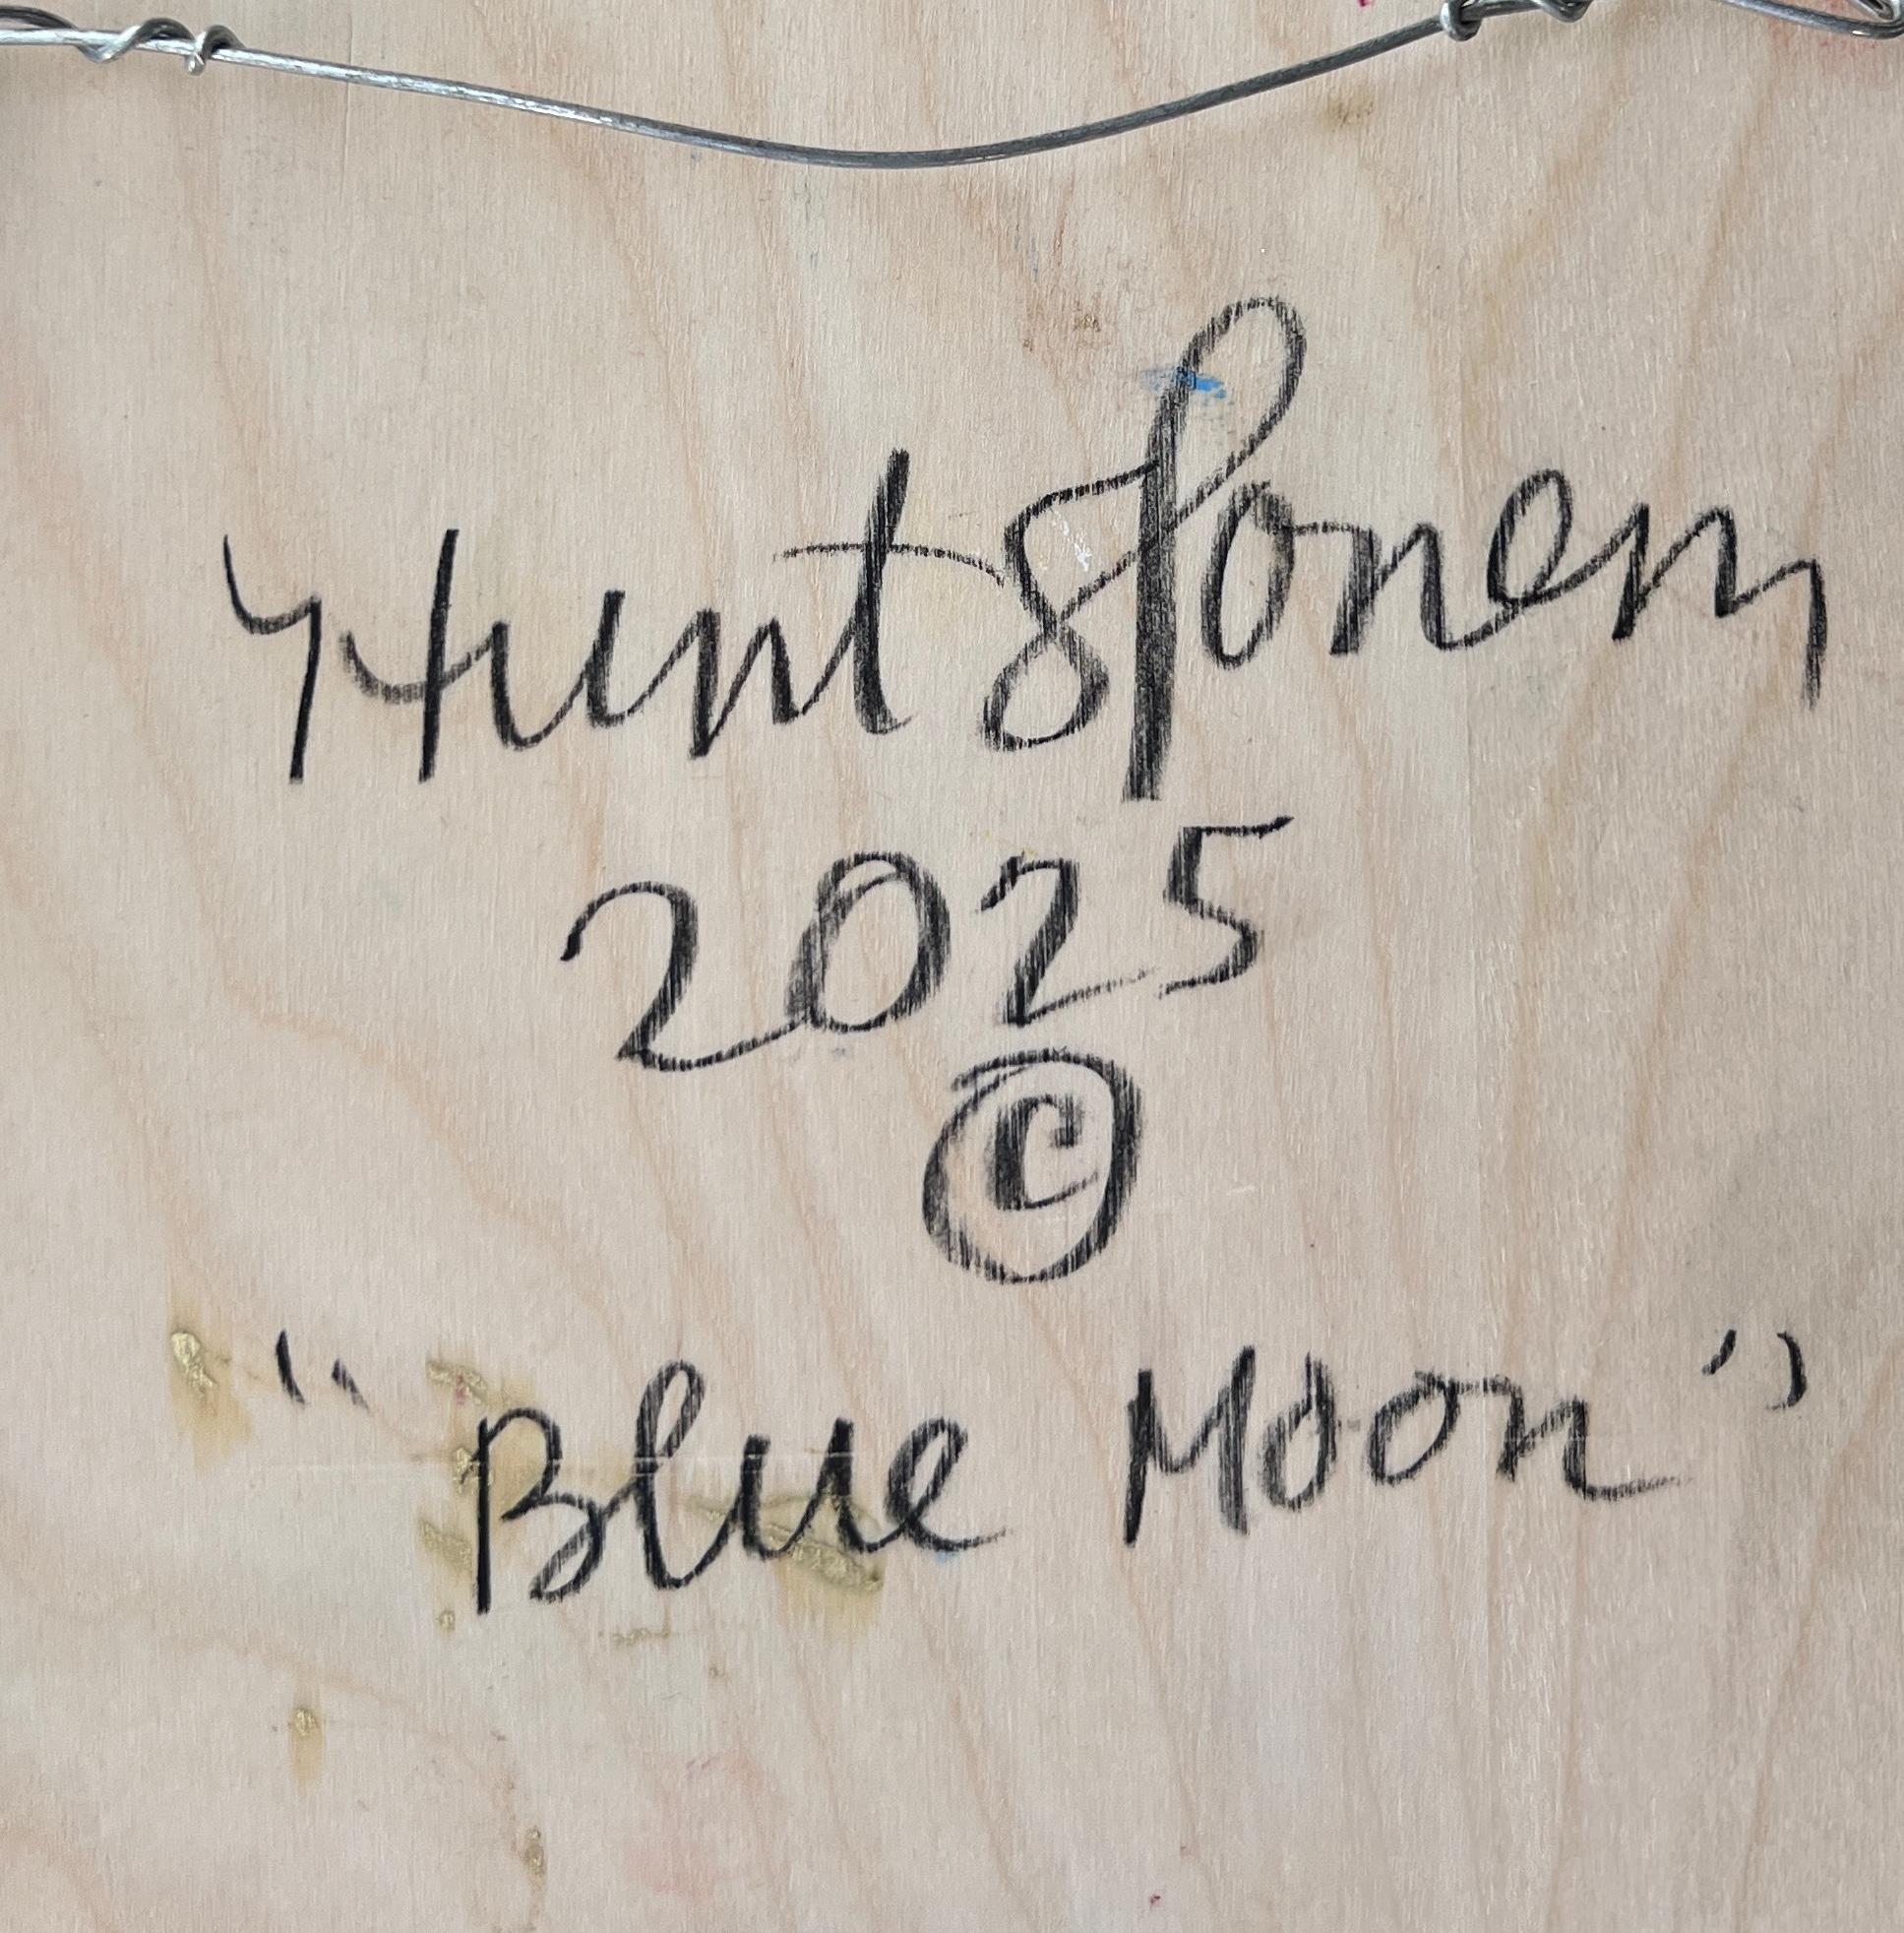 Hunt Slonem
2025
©
"Blue Moon"